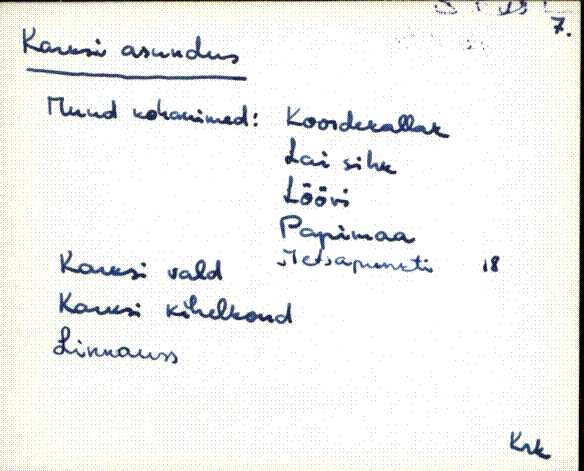 7.
Karksi asundus
Muud kohanimed: Koordekallak
Lai sihk
Löövi
Papimaa
Metsapunkti 18
Karksi vald
Karksi kihelkond
Linnauss
Krk